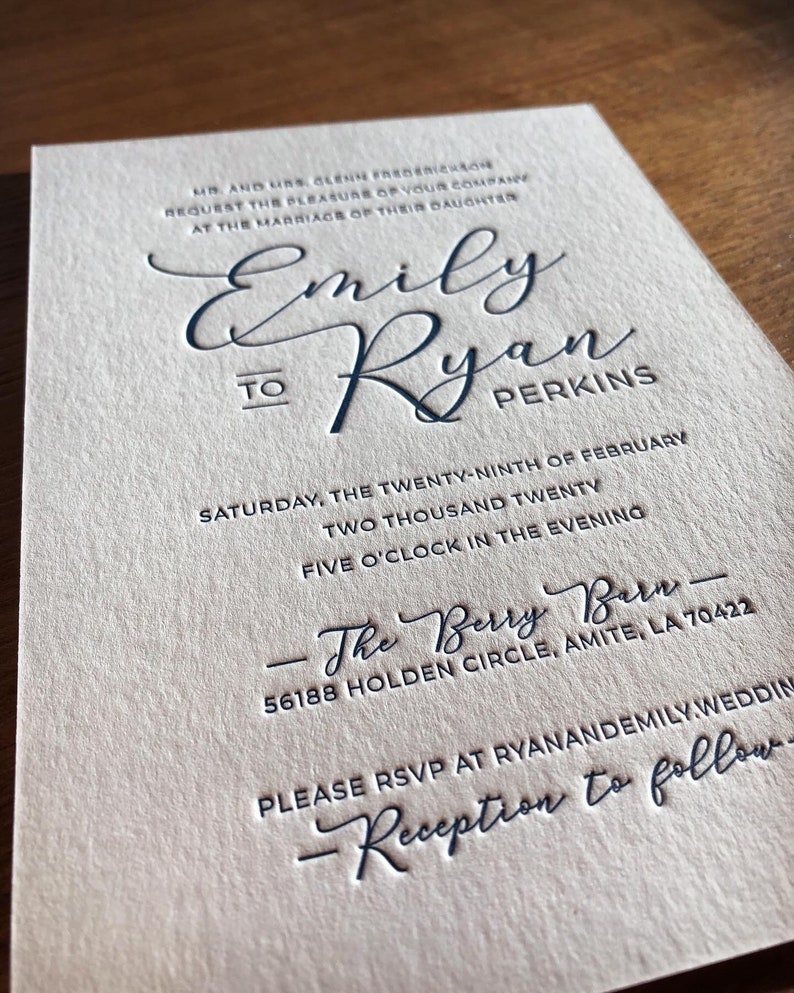 MR. AND MRS. GLENN FREDERICKSON
REQUEST THE PLEASURE OF YOUR COMPANY
AT THE MARRIAGE OF THEIR DAUGHTER
Emily
TO Ryan
PERKINS
SATURDAY, THE TWENTY-NINTH OF FEBRUARY
TWO THOUSAND TWENTY
FIVE O'CLOCK IN THE EVENING
— The Berry Barn —
56188 HOLDEN CIRCLE, AMITE, LA 70422
PLEASE RSVP AT RYANANDEMILY.WEDDIN
— Reception to follow —